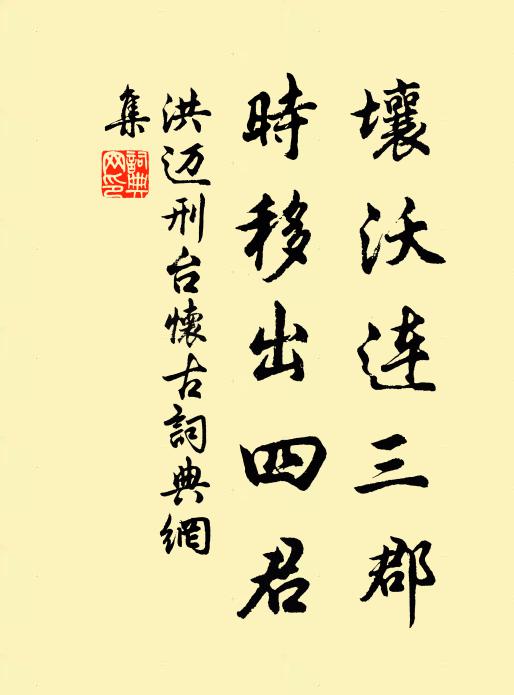 壤沃连三郡
時移出四君
洪迈刑台懷古詞典網
集
詞典
网印